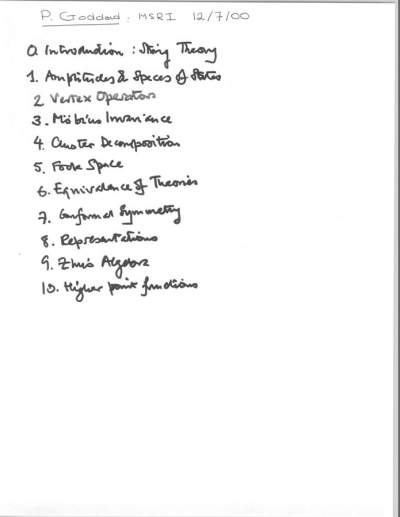 P. Goddard, MSRI 12/7/00
0. Introduction : String Theory
1. Amplitudes & Spaces of States
2 Vertex Operators
3. Möbius Invariance
4. Cluster Decomposition
5. Fock Space
6. Equivalence of Theories
7. Conformal Symmetry
8. Representations
9. Zhu's Algebra
10. Higher point functions